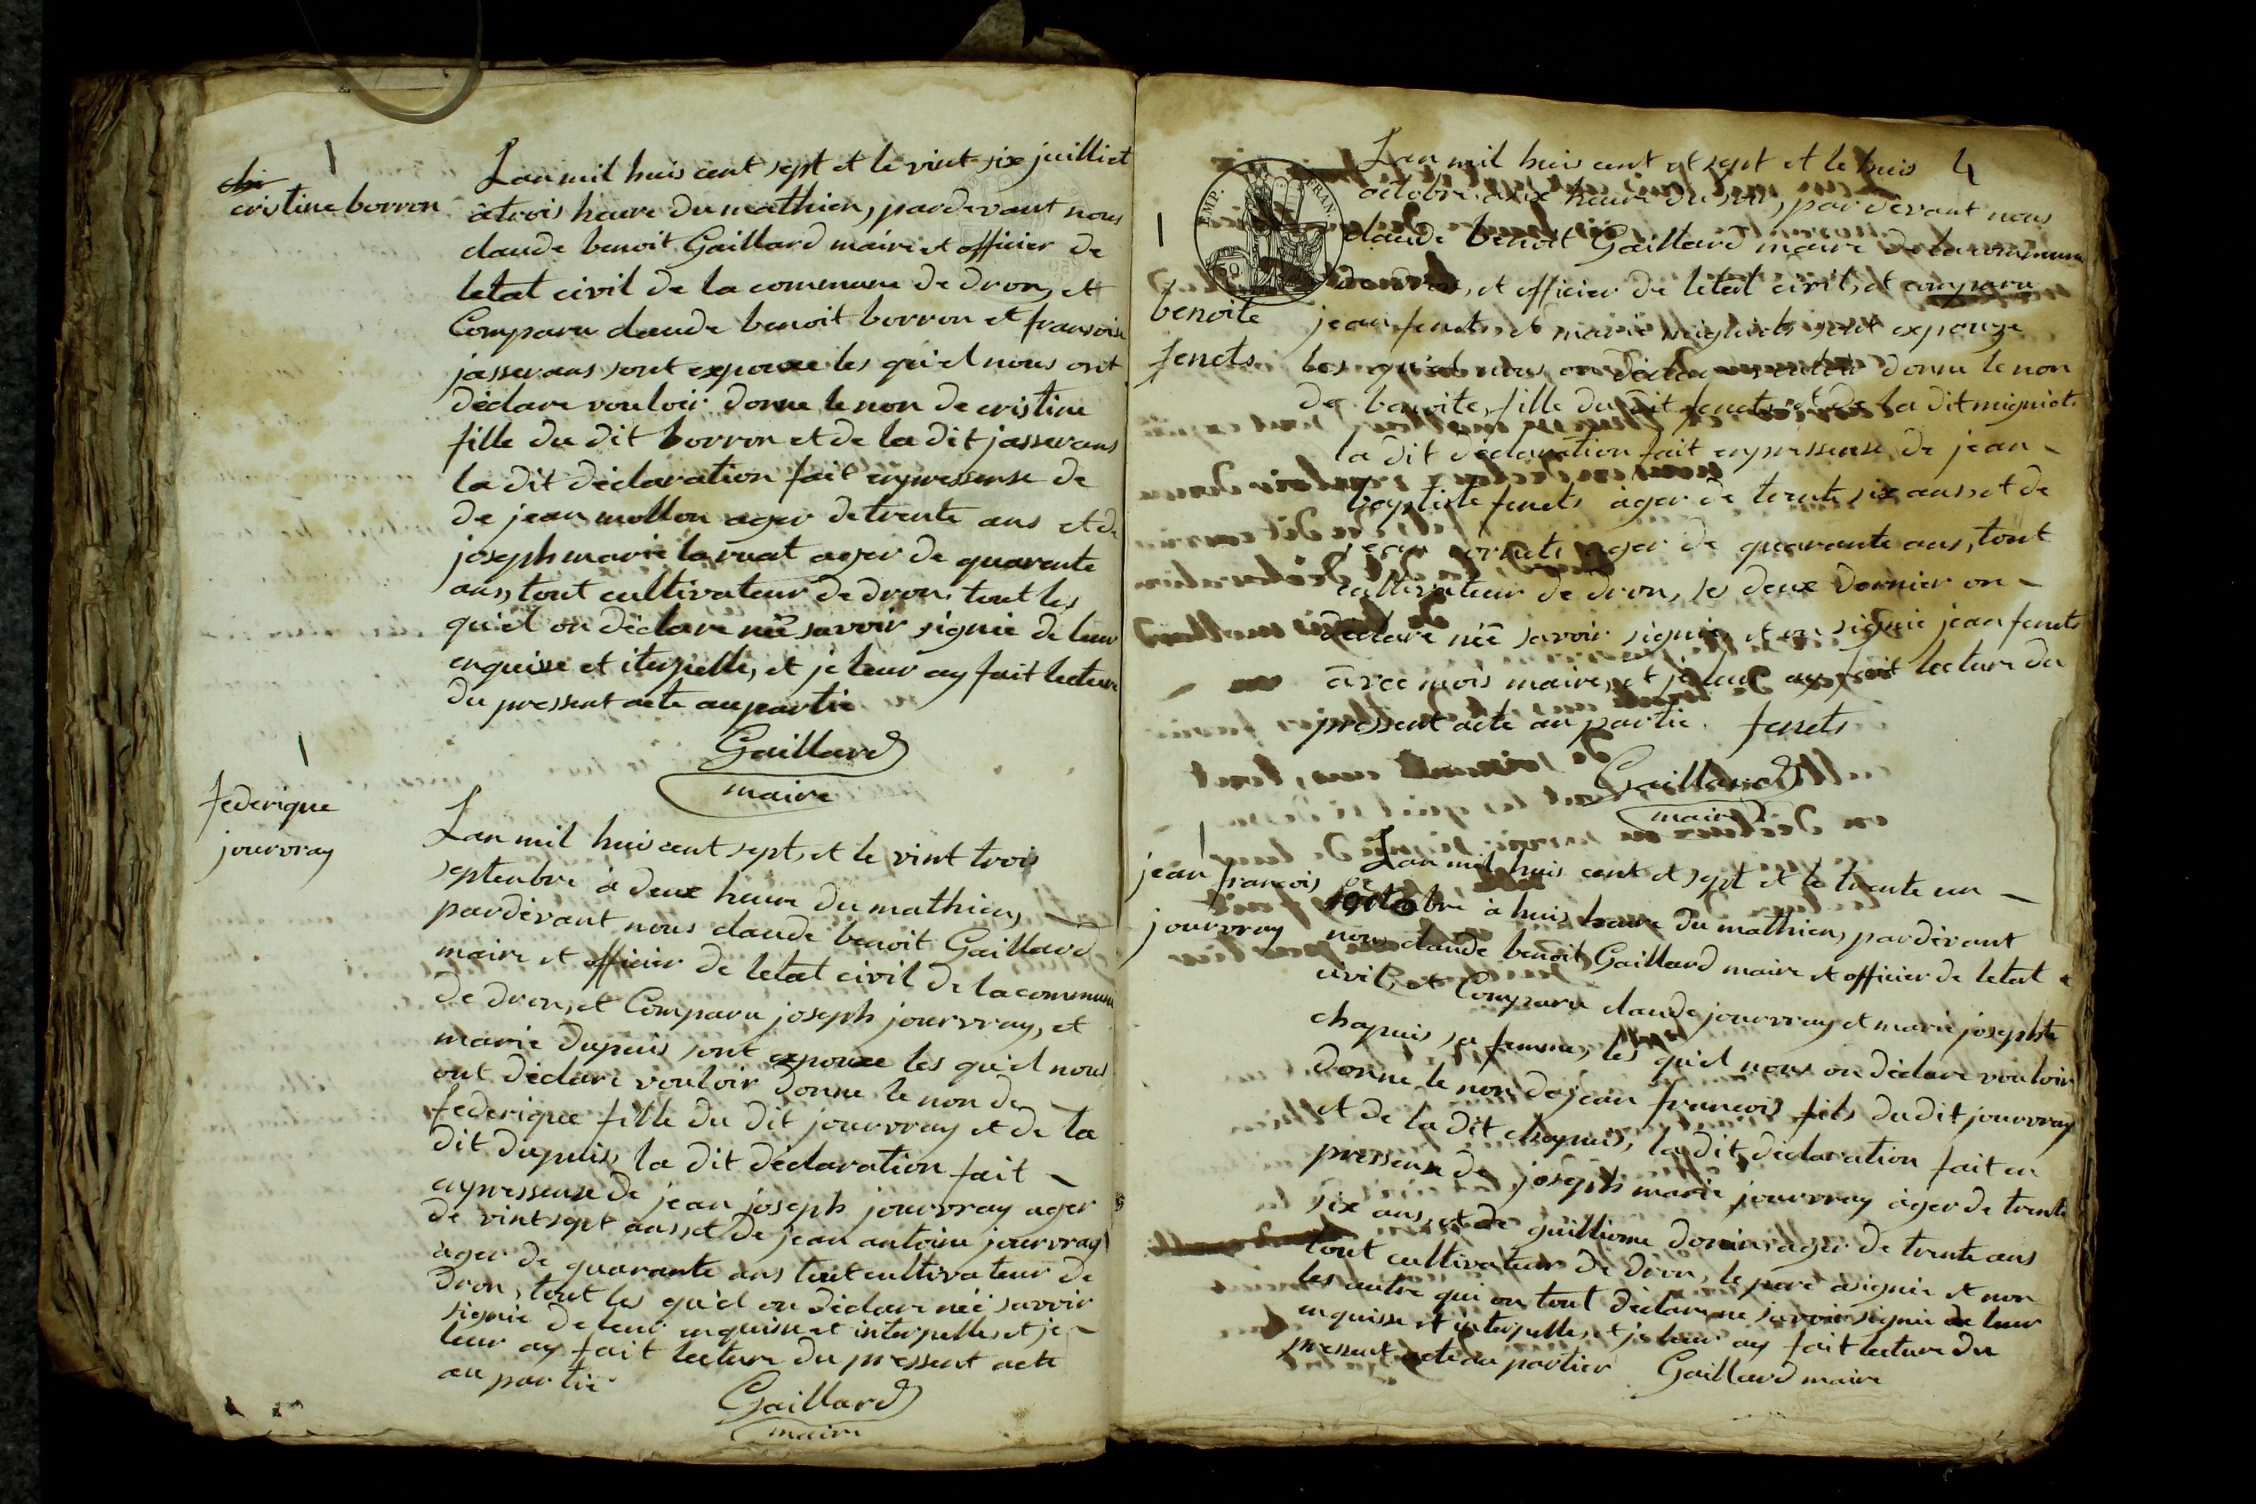 cristine borron
Lan mil huis cent sept et le vint six juilliet
à trois heure du mathien, pardevant nous
claude benoit Gaillard maire et officier de
letat civil de la commune de dron, et
Comparu claude benoit borron et fransoise
jasserans sont expouxe les qu'el nous ont
déclare vouloir donne le non de cristine
fille du dit borron et de la dit jasserans
la dit déclaration fait enpressense de
de jean mollon ager de trente ans et de
joseph marie laruat ager de quarente
ans, tout cultivateur de dron, tout les
qu'el on déclare néé savoir signie de leur
enquisse et iterpelle, et je leur ay fait lecture
du pressent acte au partie
Gaillard
maire
federique
jourvray
Lan mil huis cent sept, et le vint trois
septenbre à deux heure du mathien,
pardevant nous claude benoit Gaillard
maire et officier de letat civil de la commune
de dron, et Comparu joseph jourvray, et
marie dupuis sont expouxe les qu'el nous
ont déclare vouloir donne le non de
federique fille du dit jourvray et de la
dit dupuis, la dit déclaration fait
enpressense de jean joseph jourvray ager
de vint sept ans, et de jean antoine jourvray
àger de quarante ans tout cultivateur de
dron, tout les qu'el on déclare néé savoir
signie de leur enquisse et interpelles, et je
leur ay fait lecture du pressent acte
au partie
Gaillard
maire
4
EMP. FRAN.
benoite
fenets
Lan mil huis cent et sept et le huis
octobre à six heure du soir, pardevant nous
claude benoit Gaillard maire de la commune
de dron, et officier de letat civil, et comparu
jean fenets, et marie migniets sont expouze
les qu'el nous on déclare vouloir donne le non
de benoite, fille du dit fenets et de la dit migniets
la dit déclaration fait enpressense de jean
baptiste fenets àger de trente six ans, et de
jean ager de quarante ans, tout
cultivateur de dron, les deux dernier on
déclare néé savoir signie, et on signie jean fenets
avec mois maire, et je leur ay fait lecture du
pressent acte au partie. fenets
Gaillard
maire
jean francois
jourvray
Lan mil huis cent et sept et le trente un
octobre à huis heure du mathien, pardevant
nous claude benoit Gaillard maire et officier de letat
civil, et Comparu claude jourvray et marie josephte
chapuis sa femme, les qu'el nous on déclare vouloir
donne le non de jean francois fils du dit jourvray
et de la dit chapuis, la dit déclaration fait en
pressense de joseph marie jourvray àger de trente
six ans, et de guilliome ager de trente ans
tout cultivateur de dron, le pere a signie et non
les autre qui on tout déclare ne savoir signie de leur
enquisse et interpelles, et je leur ay fait lecture du
pressent acte au partier Gaillard maire